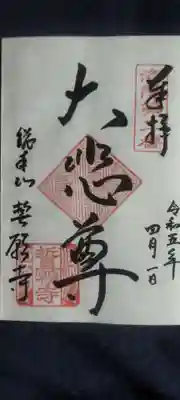 奉拝
令和五年
四月一日
大悲尊
総本山 誓願寺